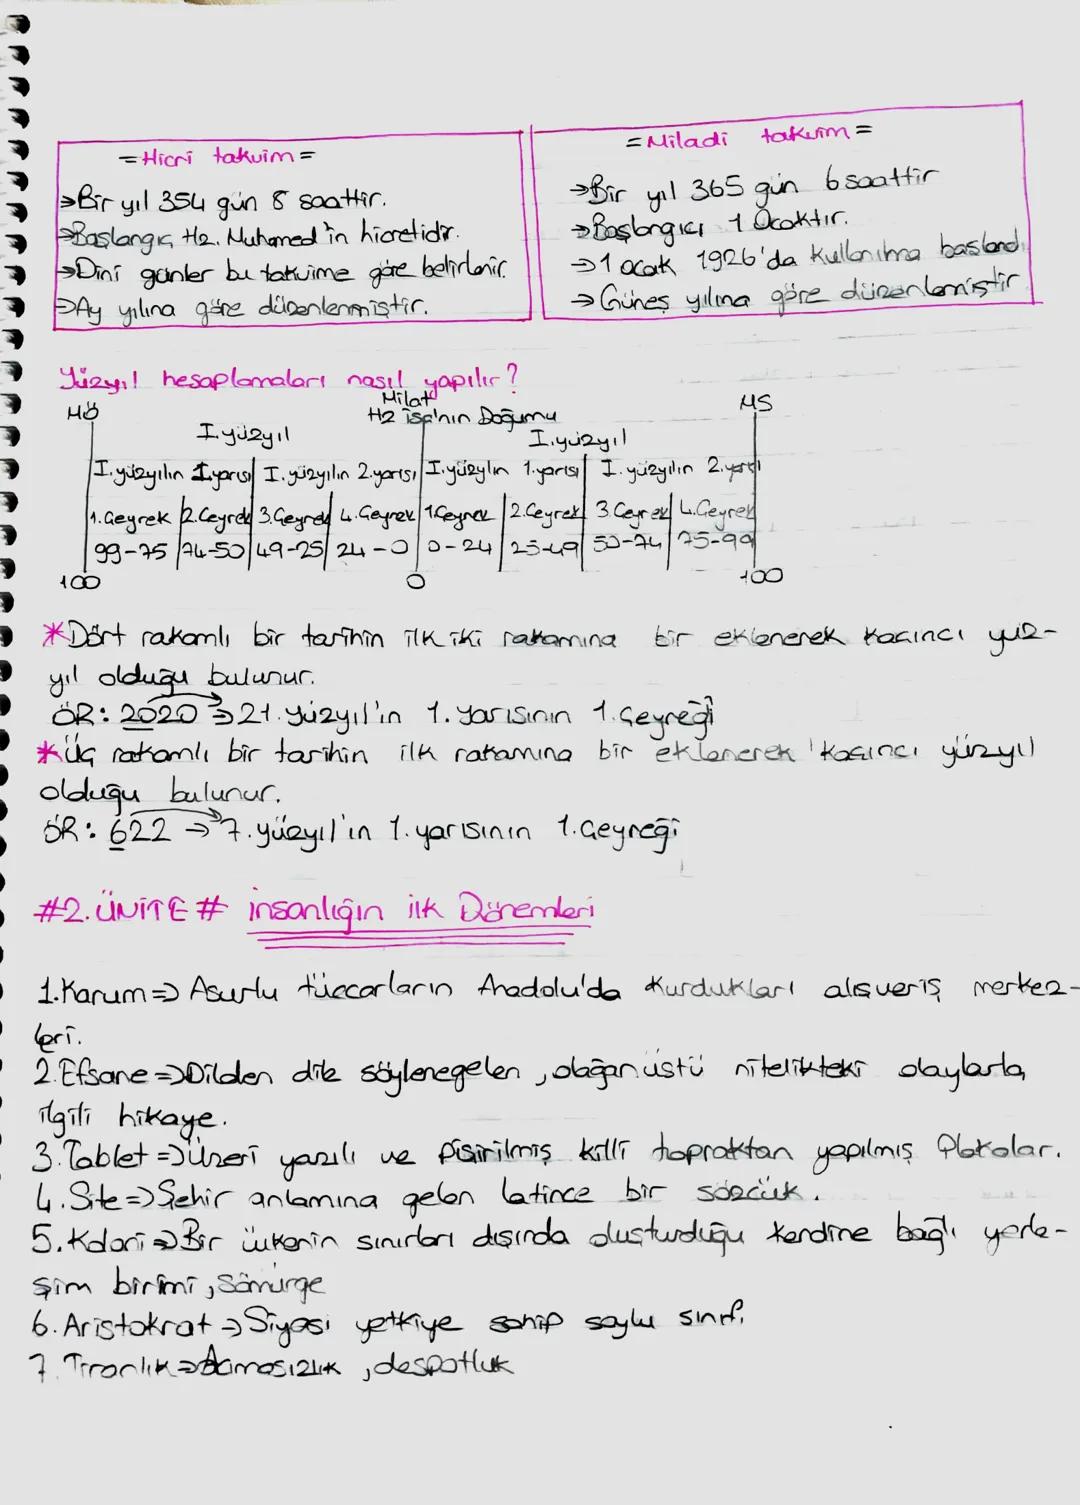 =Hicri takvim=
→Bir yıl 354 gün 8 saattir.
→Başlangıç Hz. Muhamed'in hicretidir.
→Dini günler bu takvime göre belirlenir.
→Ay yılına göre düzenlenmiştir.
=Miladi takvim=
→Bir yıl 365 gün 6 saattir
→Başlangıcı 1 Ocaktır.
→1 ocak 1926'da kullanılma başlandı
→Güneş yılına göre düzenlemiştir
Yüzyıl hesaplamaları nasıl yapılır?
MÖ Milat MS
Hz İsa'nın Doğumu
I.yüzyıl I.yüzyıl
I.yüzyılın 1.yarısı I.yüzyılın 2.yarısı I.yüzylın 1.yarısı I.yüzyılın 2.yarısı
1.Çeyrek 2.Çeyrek 3.Çeyrek 4.Çeyrek 1.Çeyrek 2.Çeyrek 3.Çeyrek 4.Çeyrek
99-75 74-50 49-25 24-0 0-24 25-49 50-74 75-99
100 0 100
*Dört rakamlı bir tarihin ilk iki rakamına bir eklenerek kaçıncı yüz-
yıl olduğu bulunur.
ÖR: 2020 → 21.yüzyıl'ın 1.yarısının 1.çeyreği
*Üç rakamlı bir tarihin ilk rakamına bir eklenerek kaçıncı yüzyıl
olduğu bulunur.
ÖR: 622 → 7.yüzyıl'ın 1.yarısının 1.çeyreği
#2.ÜNİTE# insanlığın ilk Dönemleri
1.Karum⇒ Asurlu tüccarların Anadolu'da kurdukları alışveriş merkez-
leri.
2.Efsane⇒Dilden dile söylenegelen, olağanüstü nitelikteki olaylarla
ilgili hikaye.
3.Tablet⇒Üzeri yazılı ve pişirilmiş killi topraktan yapılmış plakalar.
4.Site⇒Şehir anlamına gelen latince bir sözcük.
5.Koloni⇒Bir ülkenin sınırları dışında oluşturduğu kendine bağlı yerle-
şim birimi, sömürge
6.Aristokrat→Siyasi yetkiye sahip soylu sınıf.
7.Tiranlık⇒Acımasızlık, despotluk